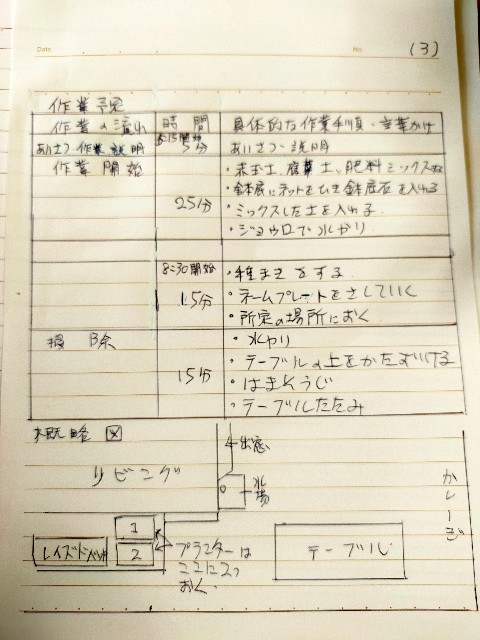 Date
No.
(3)
作業予定
作業の流れ 時間 具体的な作業手順・言葉かけ
あいさつ 作業説明 8:15開始 5分 あいさつ・説明
作業開始 ・赤玉土、腐葉土、肥料ミックスする
25分 ・鉢底にネットをひき鉢底石を入れる
・ミックスした土を入れる
・ジョウロで水やり
8:30開始 ・種まきをする
15分 ・ネームプレートをさしていく
・所定の場所におく
掃除 ・水やり
15分 ・テーブルの上をかたずける
・はきそうじ
・テーブルたたみ
概略図
リビング
出窓
水場
ガレージ
レイズドベッド
1
2
プランターは
ここに2つ
おく。
テーブル